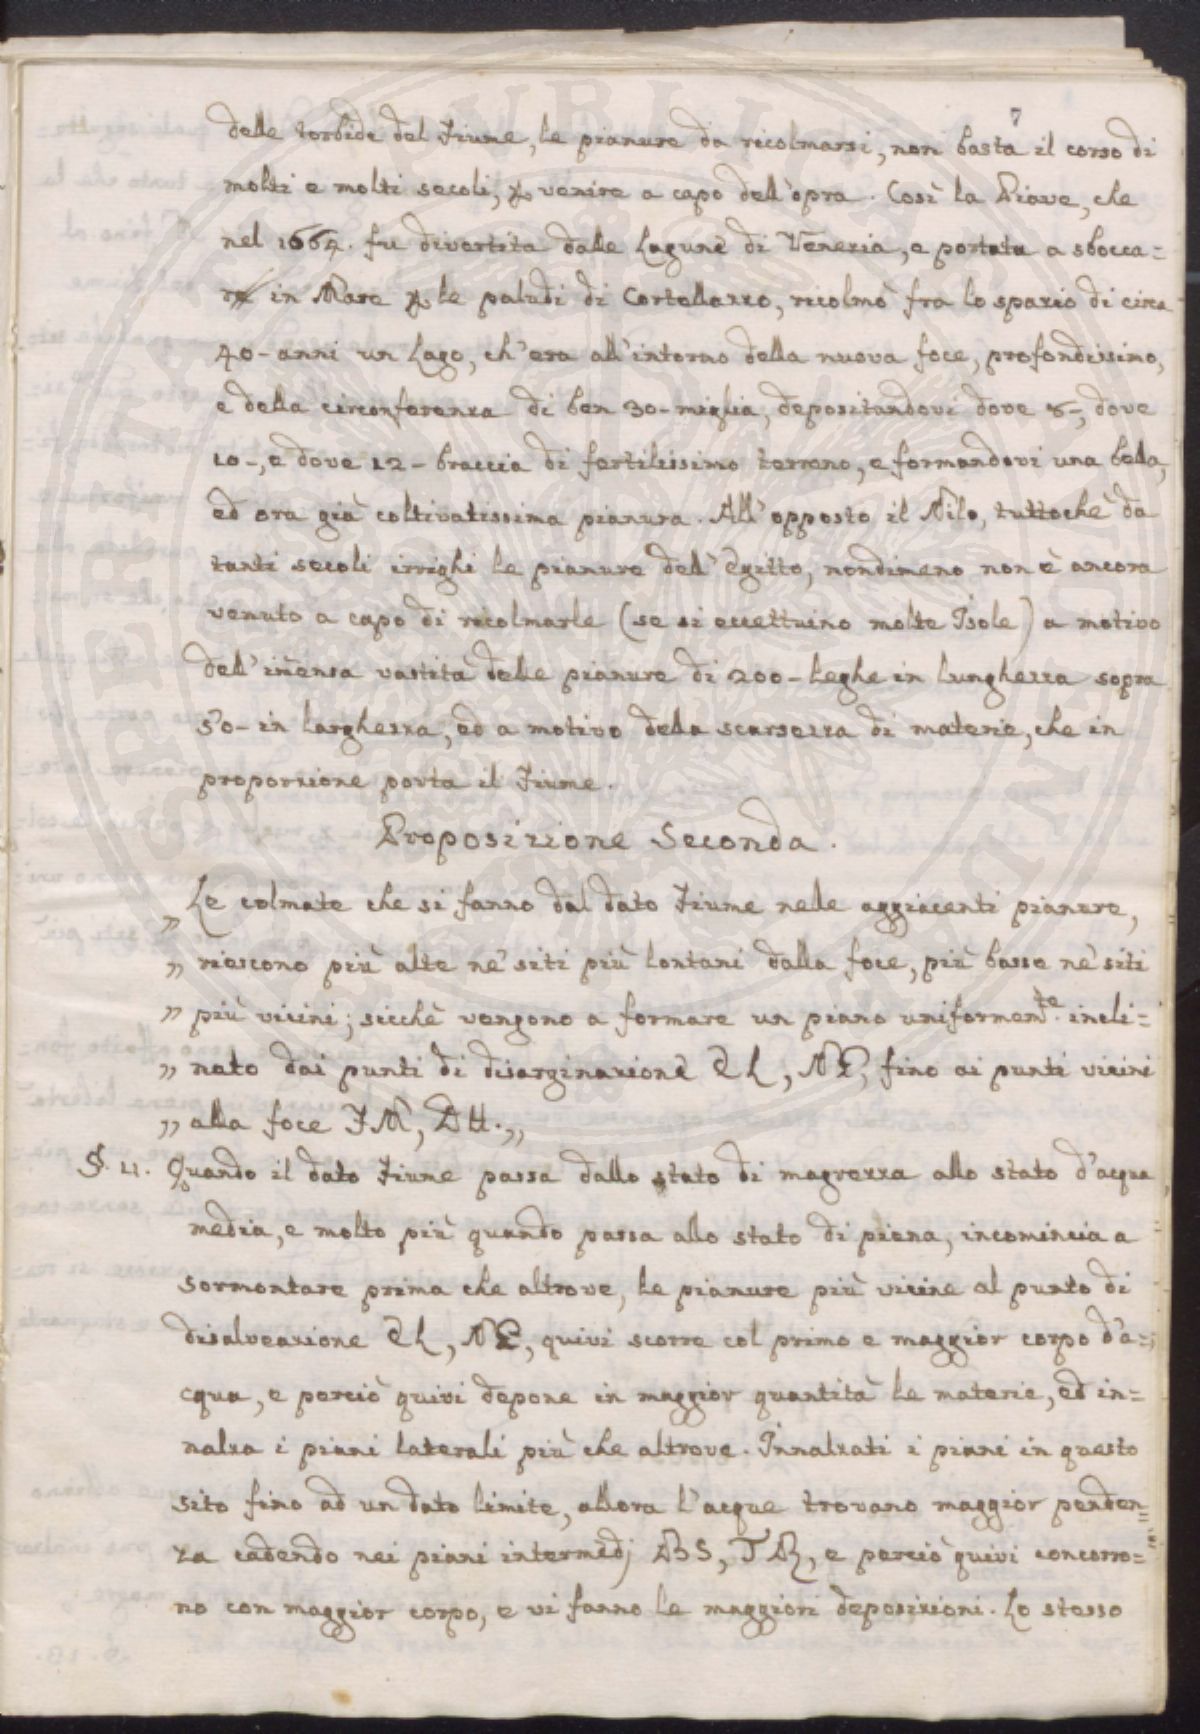 7
delle torbide del Fiume, le pianure da ricolmarsi, non basta il corso di
molti e molti secoli, p venire a capo dell'opra. Così la Piave, che
nel 1664. fu divertita dalle Lagune di Venezia, e portata a sbocca=
re in Mare p le paludi di Cortellazzo, ricolmò fra lo spazio di circa
40- anni un Lago, ch'era all'intorno della nuova foce, profondissimo,
e della circonferenza di ben 30- miglia, depositandovi dove 8-, dove
10-, e dove 12- braccia di fertilissimo terreno, e formandovi una bella,
ed ora già coltivatissima pianura. All'opposto il Nilo, tuttochè da
tanti secoli irrighi le pianure dell'Egitto, nondimeno non è ancora
venuto a capo di ricolmarle (se si eccettuino molte Isole) a motivo
dell'imensa vastità delle pianure di 200- Leghe in lunghezza sopra
50- in larghezza, ed a motivo della scarsezza di materie, che in
proporzione porta il Fiume.
Proposizione Seconda.
„ Le colmate che si fanno dal dato Fiume nelle aggiacenti pianure,
„ riescono più alte ne' siti più lontani dalla foce, più basse ne' siti
„ più vicini; sicchè vengono a formare un piano uniformente. incli=
„ nato dai punti di disarginazione EL, NE, fino ai punti vicini
„ alla foce FM, DH.„
§. 11. Quando il dato Fiume passa dallo stato di magrezza allo stato d'acqua
media, e molto più quando passa allo stato di piena, incomincia a
sormontare prima che altrove, le pianure più vicine al punto di
disalveazione EL, NE, quivi scorre col primo e maggior corpo d'a=
cqua, e perciò quivi depone in maggior quantità le materie, ed in=
nalza i piani laterali più che altrove. Innalzati i piani in questo
sito fino ad un dato limite, allora l'acque trovano maggior penden=
za cadendo nei piani intermedj BS, TR, e perciò quivi concorro=
no con maggior corpo, e vi fanno le maggiori deposizioni. Lo stesso